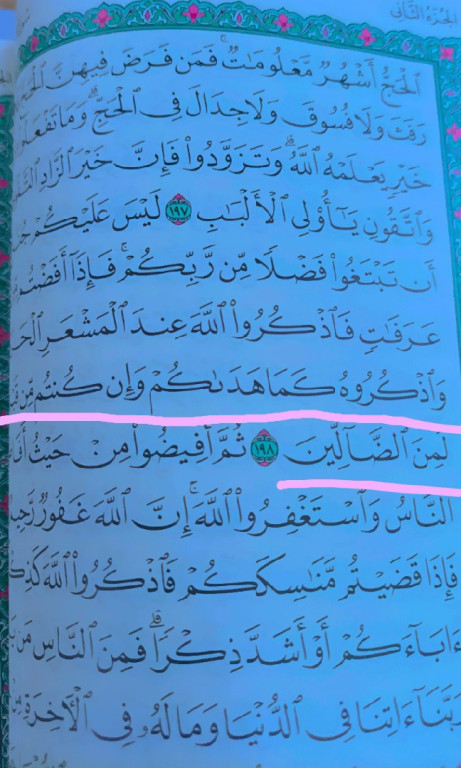 الجزء الثاني
ٱلۡحَجُّ أَشۡهُرٞ مَّعۡلُومَٰتٞۚ فَمَن فَرَضَ فِيهِنَّ
رَفَثَ وَلَا فُسُوقَ وَلَا جِدَالَ فِي ٱلۡحَجِّۗ وَمَا
خَيۡرٖ يَعۡلَمۡهُ ٱللَّهُۗ وَتَزَوَّدُواْ فَإِنَّ خَيۡرَ ٱلزَّادِ
وَٱتَّقُونِ يَٰٓأُوْلِي ٱلۡأَلۡبَٰبِ ١٩٧ لَيۡسَ عَلَيۡكُمۡ
أَن تَبۡتَغُواْ فَضۡلٗا مِّن رَّبِّكُمۡۚ فَإِذَآ
عَرَفَٰتٖ فَٱذۡكُرُواْ ٱللَّهَ عِندَ ٱلۡمَشۡعَرِ
وَٱذۡكُرُوهُ كَمَا هَدَىٰكُمۡ وَإِن كُنتُم مِّن
لَمِنَ ٱلضَّآلِّينَ ١٩٨ ثُمَّ أَفِيضُواْ مِنۡ حَيۡثُ
ٱلنَّاسُ وَٱسۡتَغۡفِرُواْ ٱللَّهَۚ إِنَّ ٱللَّهَ غَفُورٞ
فَإِذَا قَضَيۡتُم مَّنَٰسِكَكُمۡ فَٱذۡكُرُواْ ٱللَّهَ
ءَابَآءَكُمۡ أَوۡ أَشَدَّ ذِكۡرٗاۗ فَمِنَ ٱلنَّاسِ
رَبَّنَآ ءَاتِنَا فِي ٱلدُّنۡيَا وَمَا لَهُۥ فِي ٱلۡأٓخِرَةِ